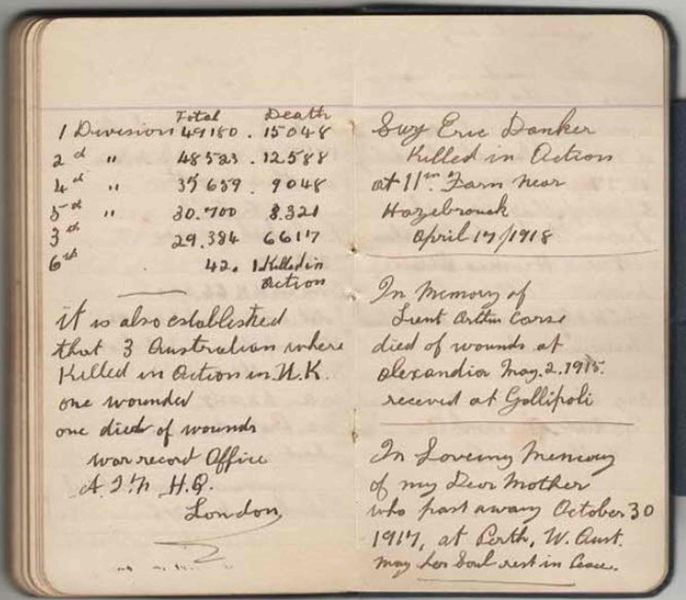 Total Death
1 Division 49180. 15048
2d " 48523. 12588
4d " 35659. 9048
5d " 30.700 8.321
3d 29.384 6617
6th 42. 1 Killed in
Action
it is also established
that 3 Australian where
Killed in Action in N.K.
one wounded
one died of wounds
war record Office
A.I.F. H.Q.
London
Eric Danker
Killed in Action
at 11m Farm near
Hazebrouck
April 17/1918
In Memory of
Lieut Arthur Carse
died of wounds at
Alexandia May. 2. 1915.
receved at Gallipoli
In Loveing Memory
of my Dear Mother
who past away October 30
1917, at Perth, W. Aust.
may her Soul rest in Peace.